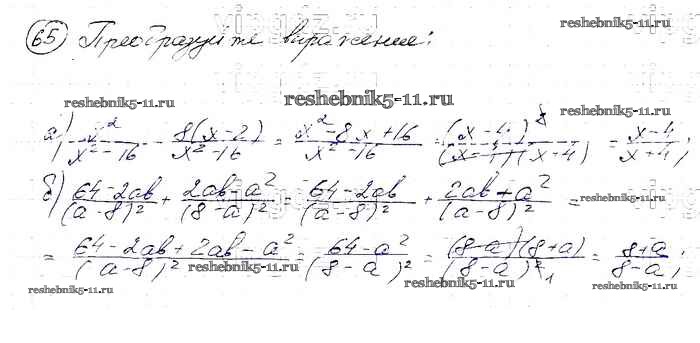 reshebnik5-11.ru
65 Преобразуйте выражение:
reshebnik5-11.ru reshebnik5-11.ru reshebnik5-11.ru
а) x²/(x²-16) - 8(x-2)/(x²-16) = (x²-8x+16)/(x²-16) = (x-4)²/((x-4)(x+4)) = (x-4)/(x+4);
б) (64-2ab)/(a-8)² + (2ab-a²)/(8-a)² = (64-2ab)/(a-8)² + (2ab+a²)/(a-8)² =
reshebnik5-11.ru
= (64-2ab+2ab-a²)/(a-8)² = (64-a²)/(8-a)² = (8-a)(8+a)/(8-a)² = (8+a)/(8-a);
reshebnik5-11.ru
reshebnik5-11.ru reshebnik5-11.ru reshebnik5-11.ru